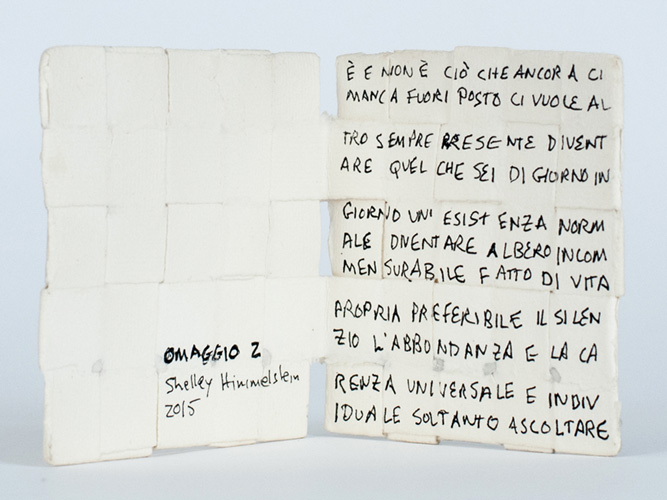 OMAGGIO 2
Shelley Himmelstein
2015
È E NON È CIÒ CHE ANCOR A CI
MANCA FUORI POSTO CI VUOLE AL
TRO SEMPRE PRESENTE DIVENT
ARE QUEL CHE SEI DI GIORNO IN
GIORNO UN' ESIST ENZA NORM
ALE DIVENTARE ALBERO INCOM
MENSURABILE FATTO DI VITA
PROPRIA PREFERIBILE IL SILEN
ZIO L'ABBONDANZA E LA CA
RENZA UNIVERSALE E INDIV
IDUALE SOLTANTO ASCOLTARE